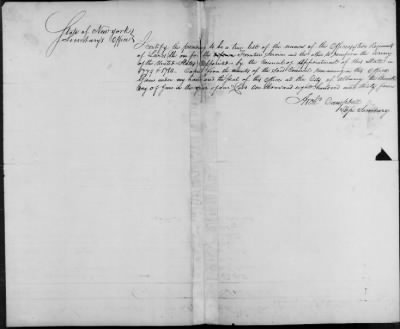 State of New York
Secretary's Office
I certify the foregoing to be a true list of the names of the Officers of two Regiments
of Levies, the one for the Frontier Service and the other to reinforce the Army
of the United States, appointed by the Council of Appointment of this State in
1779 & 1780. Copied from the minutes of the said Council remaining in this Office
Given under my hand and the Seal of the Office at the City of Albany the
day of June in the year of our Lord one thousand eight hundred and thirty four
Archd Campbell
Dep. Secretary